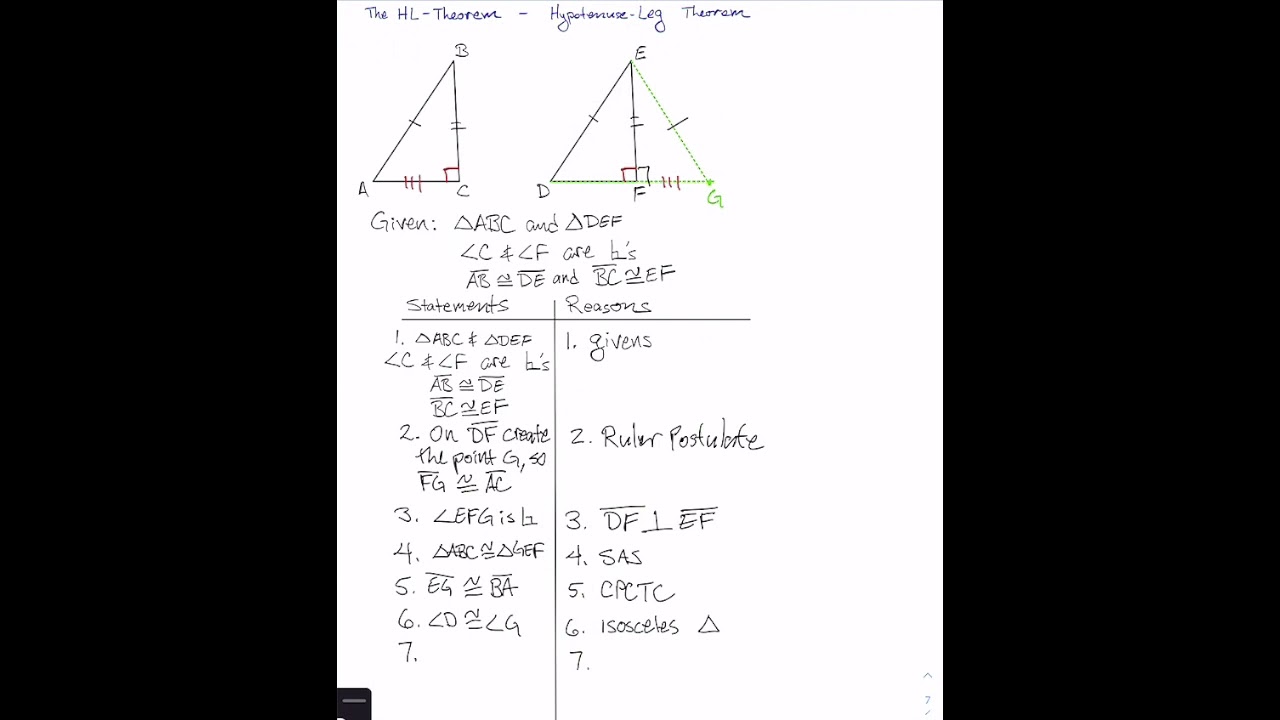 The HL-Theorem - Hypotenuse-Leg Theorem
B
E
A
C
D
F
G
Given: △ABC and △DEF
∠C & ∠F are ⊾'s
A̅B̅ ≅ D̅E̅ and B̅C̅ ≅ EF
Statements
Reasons
1. △ABC & △DEF
∠C & ∠F are ⊾'s
A̅B̅ ≅ D̅E̅
B̅C̅ ≅ EF
1. givens
2. On D̅F̅ create
the point G, so
F̅G̅ ≅ A̅C̅
2. Ruler Postulate
3. ∠EFG is ⊾
3. D̅F̅ ⊥ E̅F̅
4. △ABC ≅ △GEF
4. SAS
5. E̅G̅ ≅ B̅A̅
5. CPCTC
6. ∠D ≅ ∠G
6. isosceles △
7.
7.
7